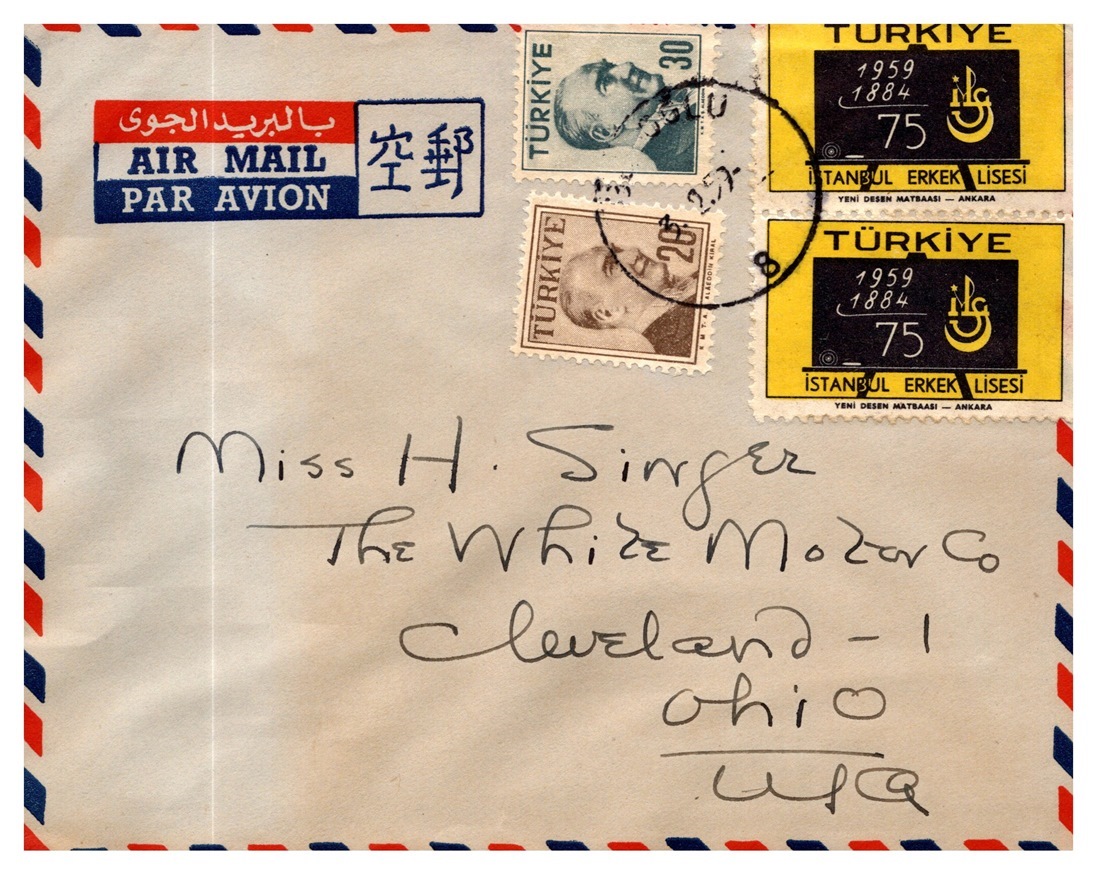 بالبريد الجوى
AIR MAIL
PAR AVION
空郵
TÜRKİYE
30
TÜRKİYE
20
ALÂEDDİN KIRAL
TÜRKİYE
1959
1884
75
İSTANBUL ERKEK LİSESİ
YENİ DESEN MATBAASI — ANKARA
TÜRKİYE
1959
1884
75
İSTANBUL ERKEK LİSESİ
YENİ DESEN MATBAASI — ANKARA
OĞLU
2.59
8
Miss H. Singer
The White Motor Co
Cleveland - 1
Ohio
USA